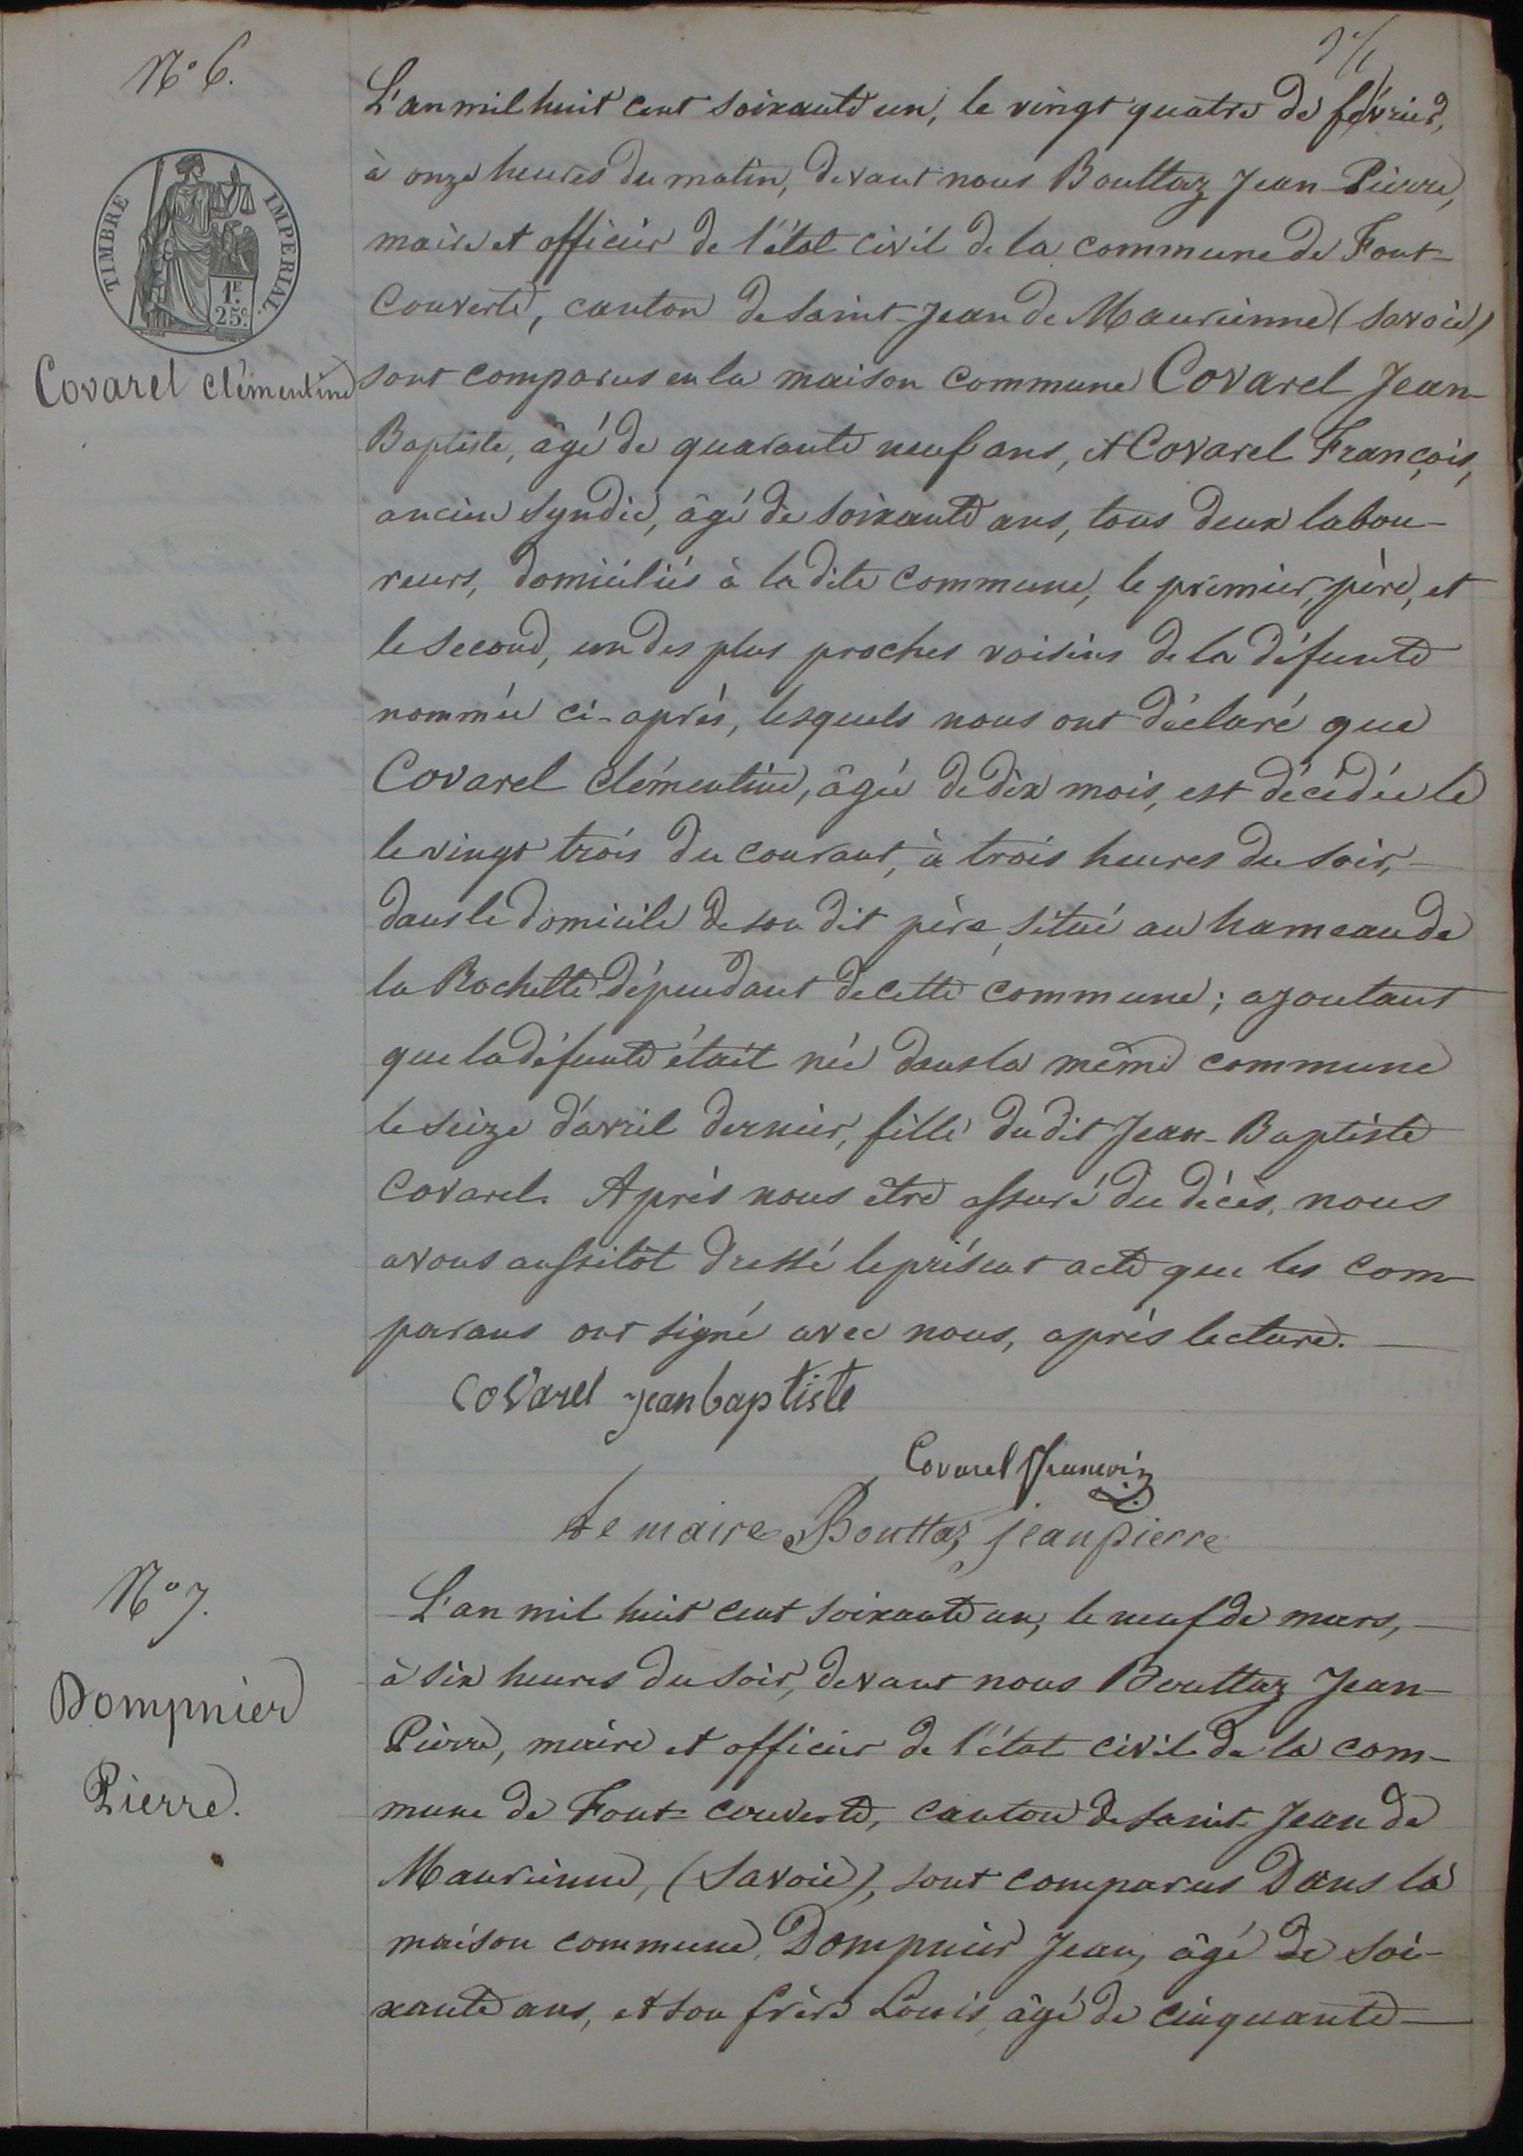 N° 6.
L'an mil huit cent soixante un, le vingt quatre de février,
à onze heures du matin, devant nous Bouttaz Jean-Pierre,
maire et officier de l'état civil de la commune de Font-
TIMBRE IMPÉRIAL.
1F.
25c.
Couverte, canton de Saint-Jean de Maurienne (Savoie)
Covarel Clémentine
sont comparus en la maison commune Covarel Jean-
Baptiste, âgé de quarante neuf ans, et Covarel François,
ancien Syndic, âgé de soixante ans, tous deux labou-
reurs, domiciliés à la dite commune, le premier, père, et
le second, un des plus proches voisins de la défunte
nommée ci-après, lesquels nous ont déclaré que
Covarel Clémentine, âgée de dix mois, est décédée le
le vingt trois du courant, à trois heures du soir,
dans le domicile de son dit père, situé au hameau de
la Rochette dépendant de cette commune; ajoutant
que la défunte était née dans la même commune
le seize d'avril dernier, fille du dit Jean-Baptiste
Covarel. Après nous être assuré du décès, nous
avons aussitôt dressé le présent acte que les com-
parans ont signé avec nous, après lecture.
Covarel jean baptiste
Covarel François
Le maire Bouttaz jean pierre
N° 7.
L'an mil huit cent soixante un, le neuf de mars,
à six heures du soir, devant nous Bouttaz Jean-
Dompnier
Pierre, maire et officier de l'état civil de la com-
Pierre.
mune de Font-couverte, canton de Saint Jean de
Maurienne, (Savoie), sont comparus Dans la
maison commune, Dompnier Jean, âgé de soi-
xante ans, et son frère Louis, âgé de cinquante